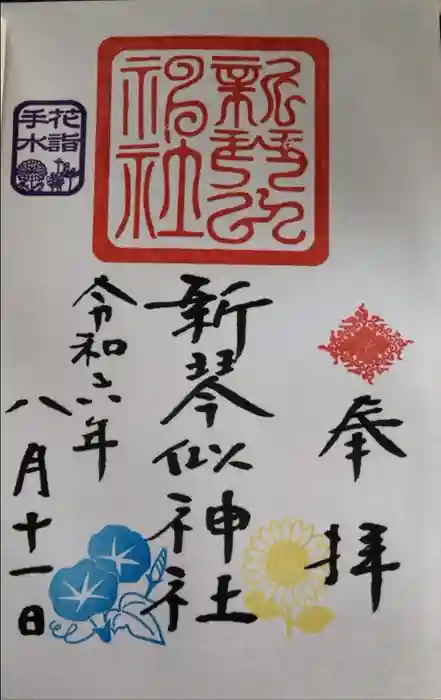 奉拝
新琴似神社
新琴似
神社
令和六年
八月十一日
花詣
手水